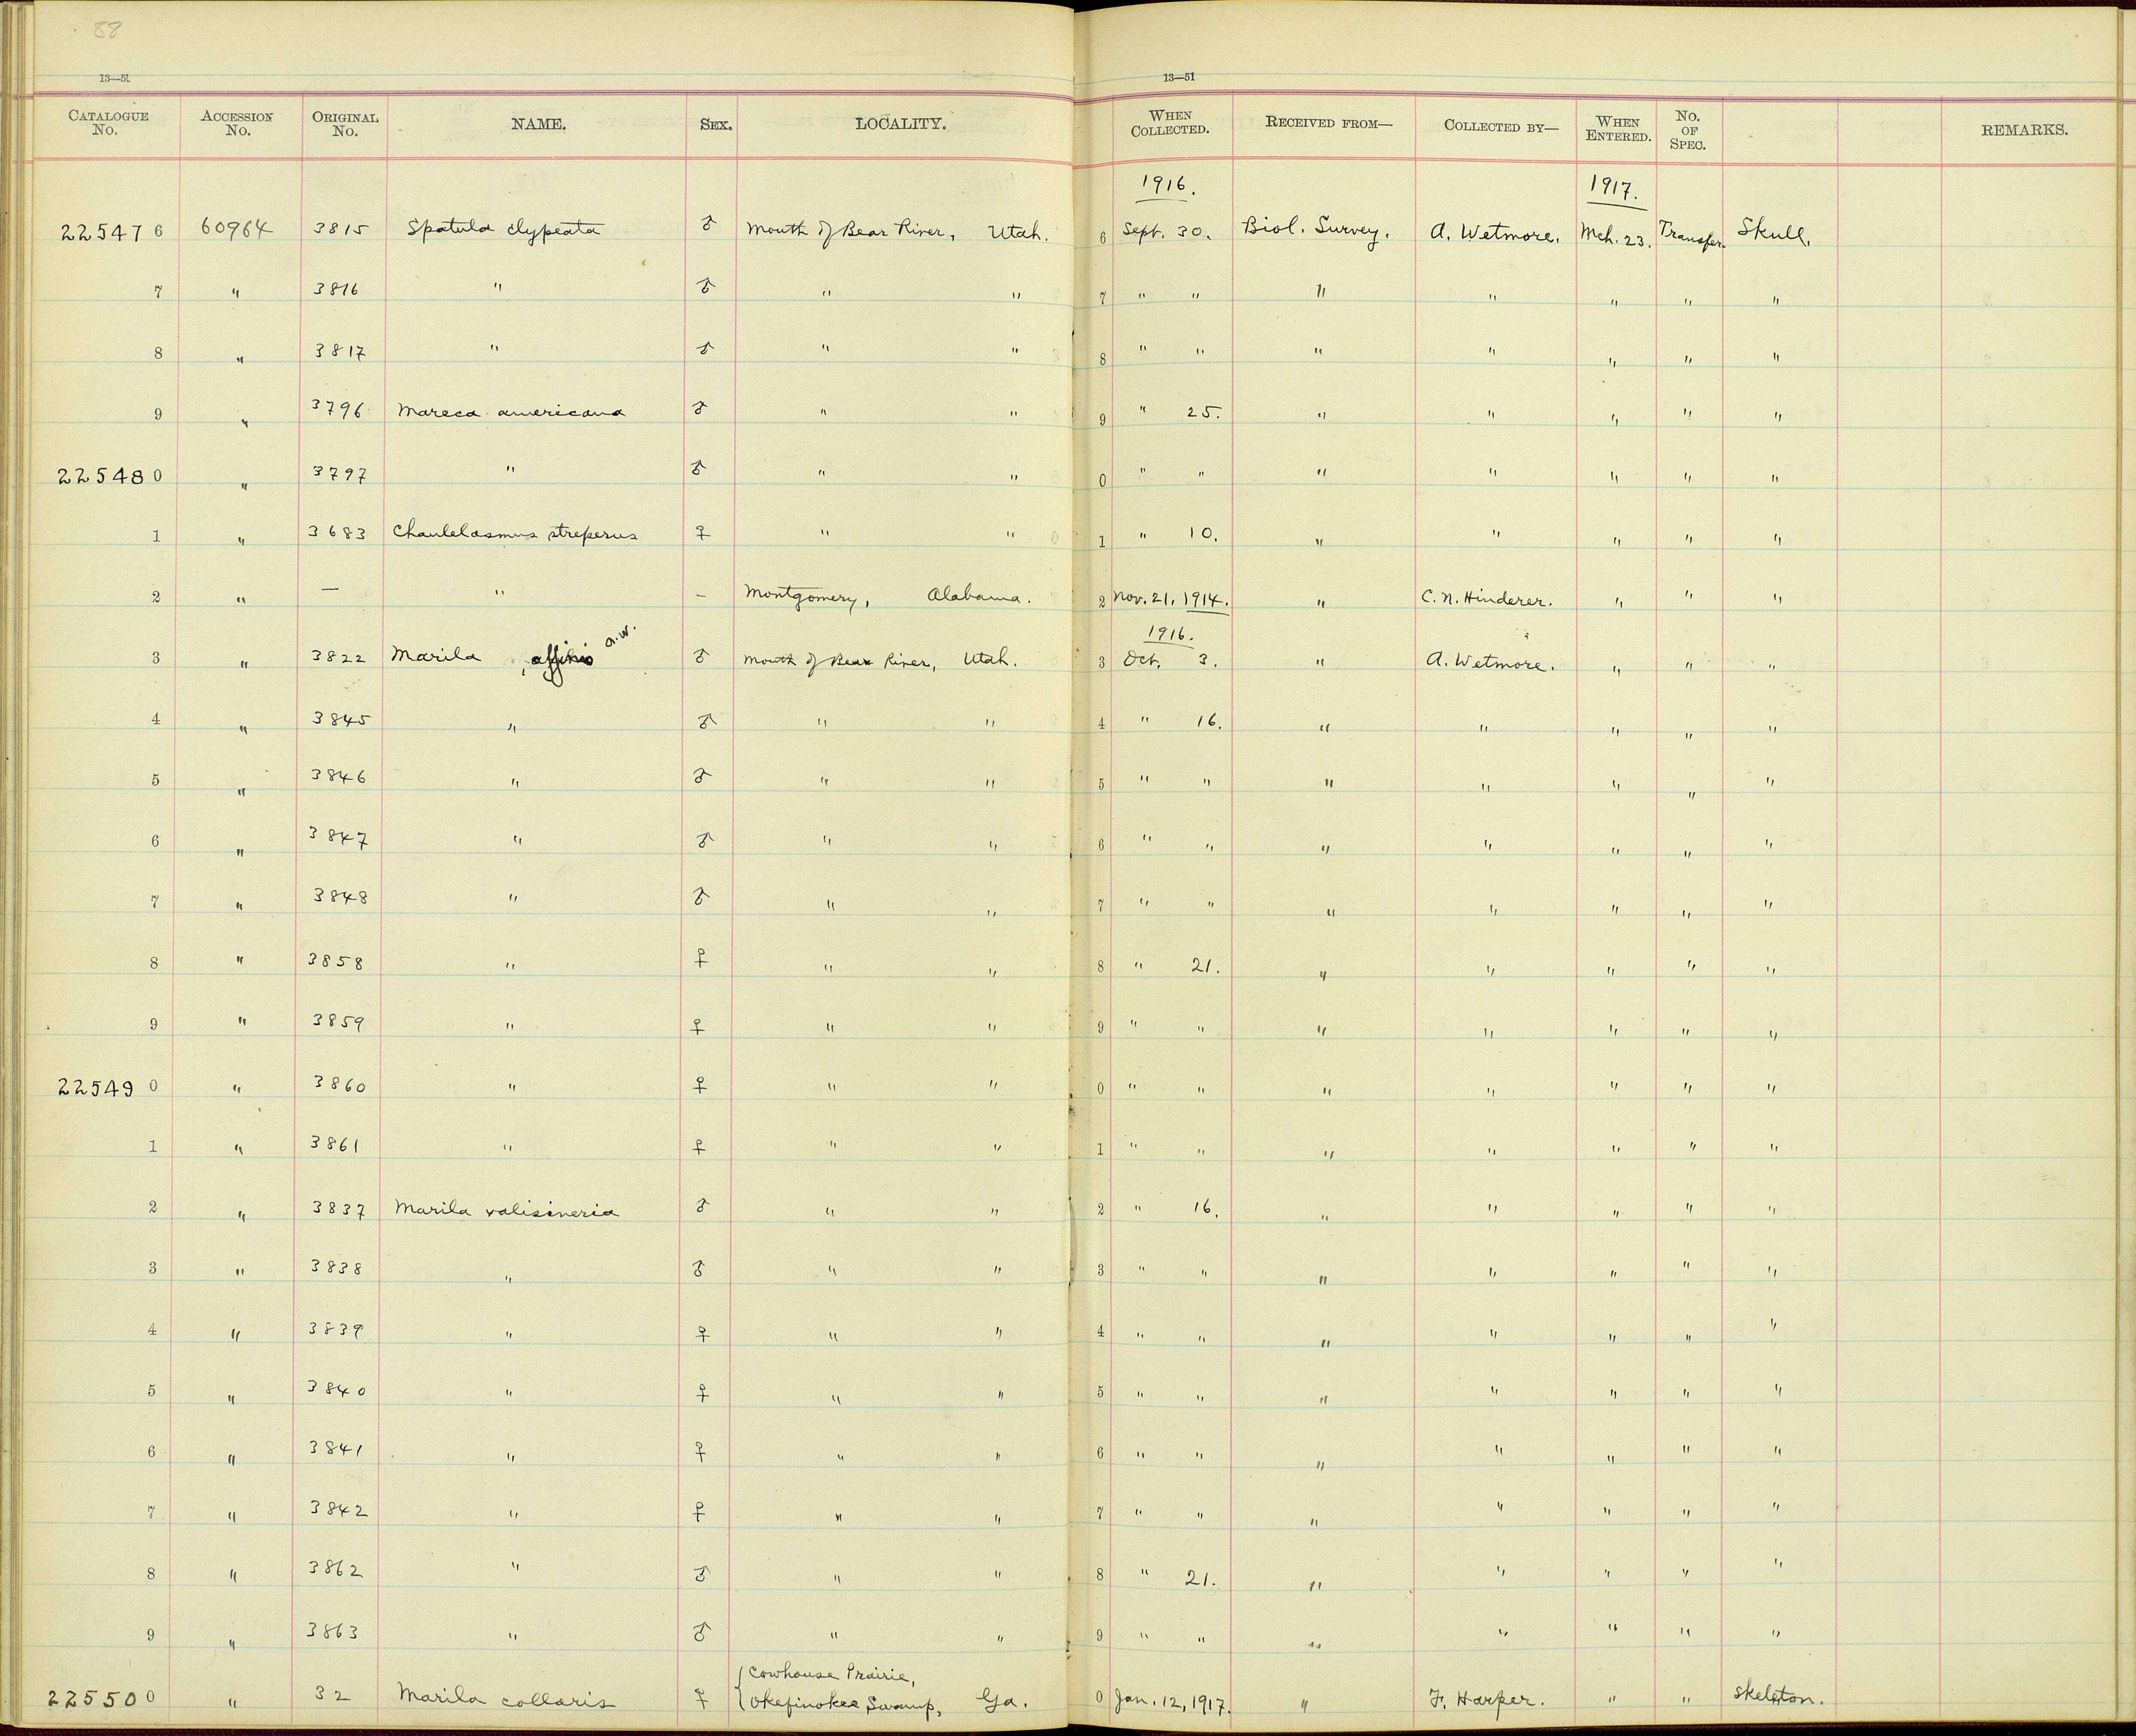 88
13—51 13—51
CATALOGUE No. ACCESSION No. ORIGINAL No. NAME. SEX. LOCALITY. WHEN COLLECTED. RECEIVED FROM— COLLECTED BY— WHEN ENTERED. No. OF SPEC. REMARKS.
1916. 1917.
225476 60964 3815 Spatula clypeata ♂ Mouth of Bear River, Utah. 6 Sept. 30. Biol. Survey. A. Wetmore. Mch. 23. Transfer. Skull.
7 " 3816 " ♂ " " 7 " " " " " " "
8 " 3817 " ♂ " " 8 " " " " " " "
9 " 3796 Mareca americana ♂ " " 9 " 25. " " " " "
225480 " 3797 " ♂ " " 0 " " " " " " "
1 " 3683 Chaulelasmus streperus ♀ " " 1 " 10. " " " " "
2 " — " – Montgomery, Alabama. 2 Nov. 21, 1914. " C. N. Hinderer. " " "
1916.
3 " 3822 Marila affinis A.W. ♂ Mouth of Bear River, Utah. 3 Oct. 3. " A. Wetmore. " " "
4 " 3845 " ♂ " " 4 " 16. " " " " "
5 " 3846 " ♂ " " 5 " " " " " " "
6 " 3847 " ♂ " " 6 " " " " " " "
7 " 3848 " ♂ " " 7 " " " " " " "
8 " 3858 " ♀ " " 8 " 21. " " " " "
9 " 3859 " ♀ " " 9 " " " " " " "
225490 " 3860 " ♀ " " 0 " " " " " " "
1 " 3861 " ♀ " " 1 " " " " " " "
2 " 3837 Marila valisineria ♂ " " 2 " 16. " " " " "
3 " 3838 " ♂ " " 3 " " " " " " "
4 " 3839 " ♀ " " 4 " " " " " " "
5 " 3840 " ♀ " " 5 " " " " " " "
6 " 3841 " ♀ " " 6 " " " " " " "
7 " 3842 " ♀ " " 7 " " " " " " "
8 " 3862 " ♂ " " 8 " 21. " " " " "
9 " 3863 " ♂ " " 9 " " " " " " "
Cowhouse Prairie,
225500 " 32 Marila collaris ♀ Okefinokee Swamp, Ga. 0 Jan. 12, 1917. " F. Harper. " " Skeleton.